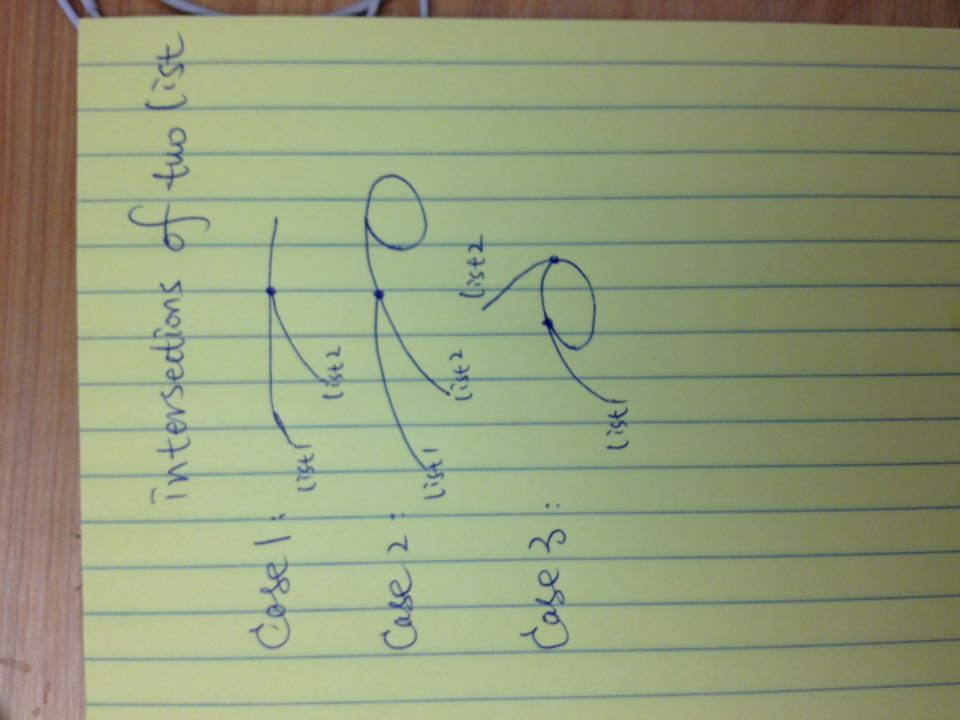 intersections of two list
Case 1:
list1
list2
Case 2:
list1
list2
list2
Case 3:
list1